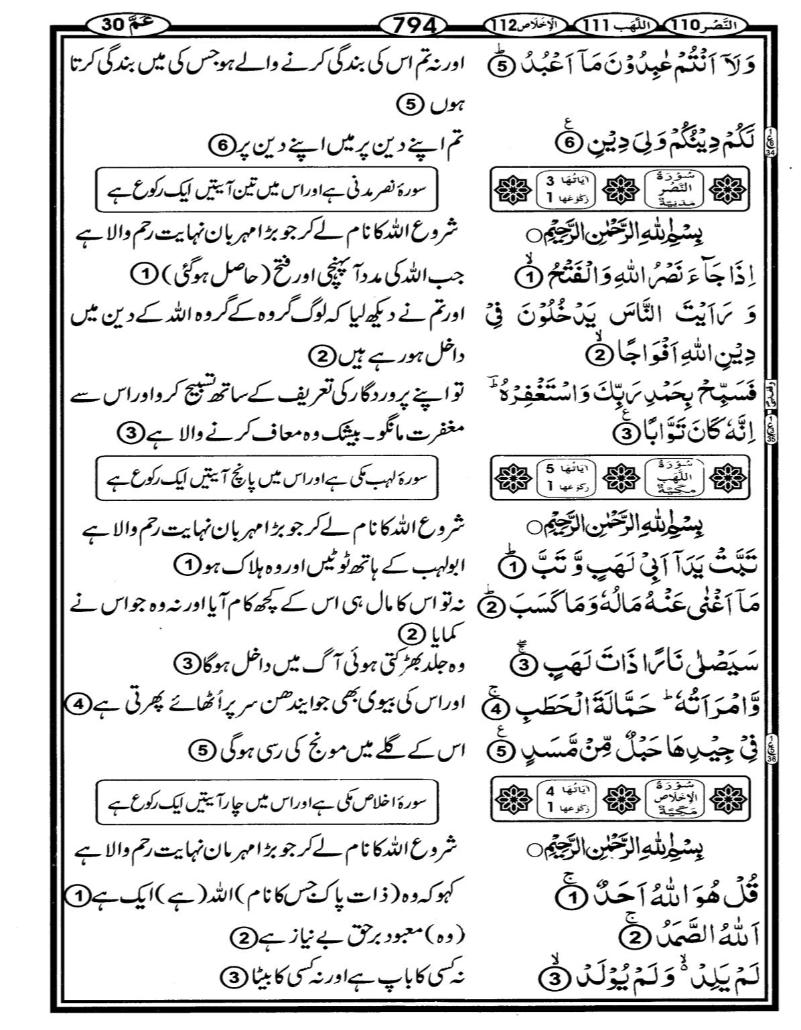 النَّصْر 110 اللَّهَب 111 الْإِخْلَاص 112 794 عَمَّ 30
وَلَآ اَنْتُمْ عٰبِدُوْنَ مَآ اَعْبُدُ ؕ 5 اور نہ تم اس کی بندگی کرنے والے ہو جس کی میں بندگی کرتا
ہوں 5
لَكُمْ دِيْنُكُمْ وَلِيَ دِيْنِ 6 تم اپنے دین پر میں اپنے دین پر 6
سُوْرَةُ النَّصْرِ مَدَنِيَّةٌ اٰيَاتُهَا 3 رُكُوْعُهَا 1 سورۂ نصر مدنی ہے اور اس میں تین آیتیں ایک رکوع ہے
بِسْمِ اللّٰهِ الرَّحْمٰنِ الرَّحِيْمِ شروع اللہ کا نام لے کر جو بڑا مہربان نہایت رحم والا ہے
اِذَا جَآءَ نَصْرُ اللّٰهِ وَالْفَتْحُ ۙ 1 جب اللہ کی مدد آ پہنچی اور فتح (حاصل ہو گئی) 1
وَ رَاَيْتَ النَّاسَ يَدْخُلُوْنَ فِيْ اور تم نے دیکھ لیا کہ لوگ گروہ کے گروہ اللہ کے دین میں
دِيْنِ اللّٰهِ اَفْوَاجًا ۙ 2 داخل ہو رہے ہیں 2
فَسَبِّحْ بِحَمْدِ رَبِّكَ وَاسْتَغْفِرْهُ ؕ تو اپنے پروردگار کی تعریف کے ساتھ تسبیح کرو اور اس سے
اِنَّهٗ كَانَ تَوَّابًا 3 مغفرت مانگو۔ بیشک وہ معاف کرنے والا ہے 3
سُوْرَةُ اللَّهَبِ مَكِّيَّةٌ اٰيَاتُهَا 5 رُكُوْعُهَا 1 سورۂ لہب مکی ہے اور اس میں پانچ آیتیں ایک رکوع ہے
بِسْمِ اللّٰهِ الرَّحْمٰنِ الرَّحِيْمِ شروع اللہ کا نام لے کر جو بڑا مہربان نہایت رحم والا ہے
تَبَّتْ يَدَآ اَبِيْ لَهَبٍ وَّتَبَّ ؕ 1 ابولہب کے ہاتھ ٹوٹیں اور وہ ہلاک ہو 1
مَآ اَغْنٰى عَنْهُ مَالُهٗ وَمَا كَسَبَ ؕ 2 نہ تو اس کا مال ہی اس کے کچھ کام آیا اور نہ وہ جو اس نے
کمایا 2
سَيَصْلٰى نَارًا ذَاتَ لَهَبٍ 3 وہ جلد بھڑکتی ہوئی آگ میں داخل ہوگا 3
وَّامْرَاَتُهٗ ؕ حَمَّالَةَ الْحَطَبِ ۚ 4 اور اس کی بیوی بھی جو ایندھن سر پر اُٹھائے پھرتی ہے 4
فِيْ جِيْدِهَا حَبْلٌ مِّنْ مَّسَدٍ 5 اس کے گلے میں مونج کی رسی ہوگی 5
سُوْرَةُ الْاِخْلَاصِ مَكِّيَّةٌ اٰيَاتُهَا 4 رُكُوْعُهَا 1 سورۂ اخلاص مکی ہے اور اس میں چار آیتیں ایک رکوع ہے
بِسْمِ اللّٰهِ الرَّحْمٰنِ الرَّحِيْمِ شروع اللہ کا نام لے کر جو بڑا مہربان نہایت رحم والا ہے
قُلْ هُوَ اللّٰهُ اَحَدٌ ۚ 1 کہو کہ وہ (ذات پاک جس کا نام) اللہ (ہے) ایک ہے 1
اَللّٰهُ الصَّمَدُ ۚ 2 (وہ) معبود برحق بے نیاز ہے 2
لَمْ يَلِدْ ۙ وَلَمْ يُوْلَدْ ۙ 3 نہ کسی کا باپ ہے اور نہ کسی کا بیٹا 3